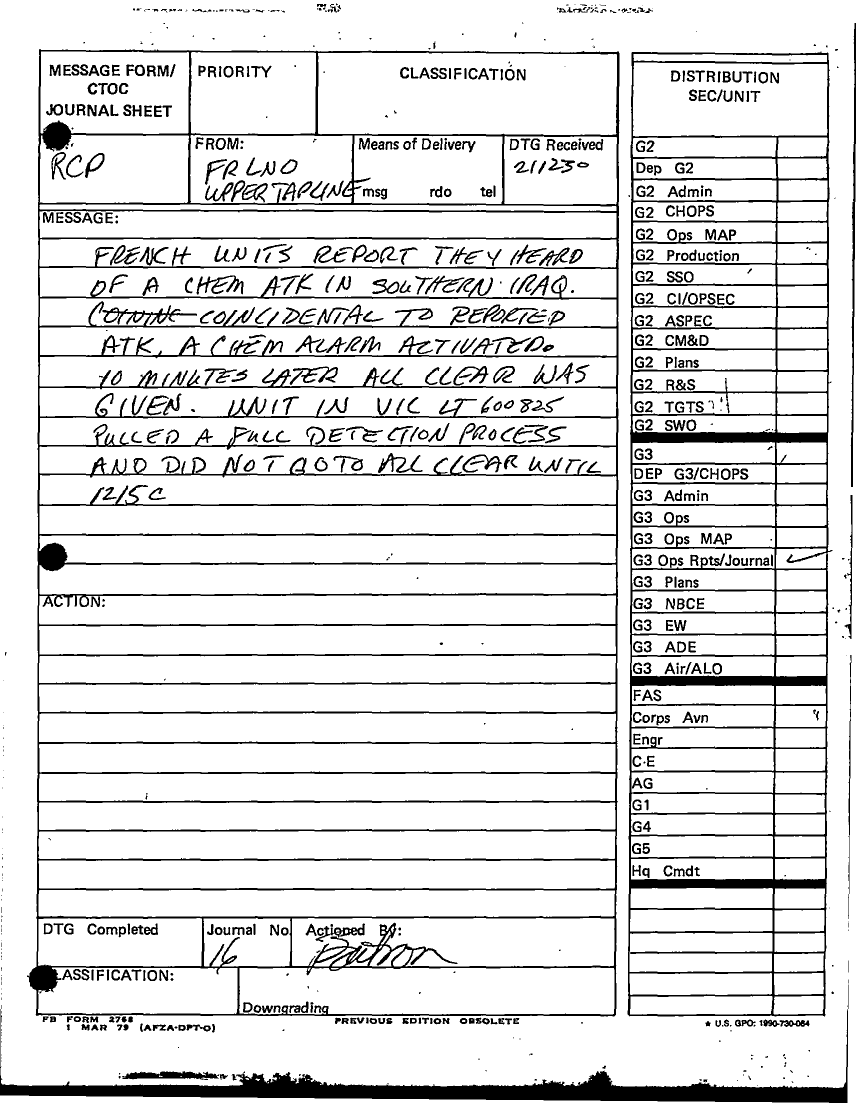 MESSAGE FORM/
CTOC
JOURNAL SHEET
PRIORITY
CLASSIFICATION
RCP
FROM:
FR LNO
UPPER TAPLINE
Means of Delivery
msg rdo tel
DTG Received
211230
MESSAGE:
FRENCH UNITS REPORT THEY HEARD
OF A CHEM ATK IN SOUTHERN IRAQ.
COINCIDENTAL TO REPORTED
ATK, A CHEM ALARM ACTIVATED.
10 MINUTES LATER ALL CLEAR WAS
GIVEN. UNIT IN VIC LT 600825
PULLED A FULL DETECTION PROCESS
AND DID NOT GO TO ALL CLEAR UNTIL
1215C
ACTION:
DTG Completed
Journal No.
16
Actioned By:
CLASSIFICATION:
Downgrading
FB FORM 2768
1 MAR 79 (AFZA-DPT-O)
PREVIOUS EDITION OBSOLETE
DISTRIBUTION
SEC/UNIT
G2
Dep G2
G2 Admin
G2 CHOPS
G2 Ops MAP
G2 Production
G2 SSO
G2 CI/OPSEC
G2 ASPEC
G2 CM&D
G2 Plans
G2 R&S
G2 TGTS
G2 SWO
G3
DEP G3/CHOPS
G3 Admin
G3 Ops
G3 Ops MAP
G3 Ops Rpts/Journal
G3 Plans
G3 NBCE
G3 EW
G3 ADE
G3 Air/ALO
FAS
Corps Avn
Engr
C-E
AG
G1
G4
G5
Hq Cmdt
★ U.S. GPO: 1990-730-084